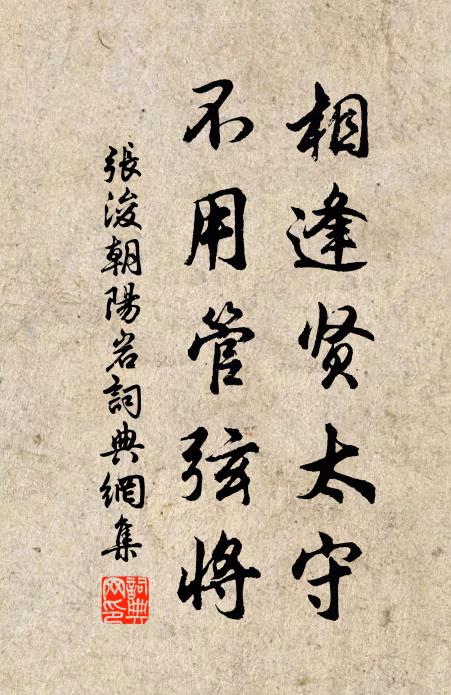 相逢贤太守
不用管弦将
張浚朝陽岩詞典網集
詞典网印